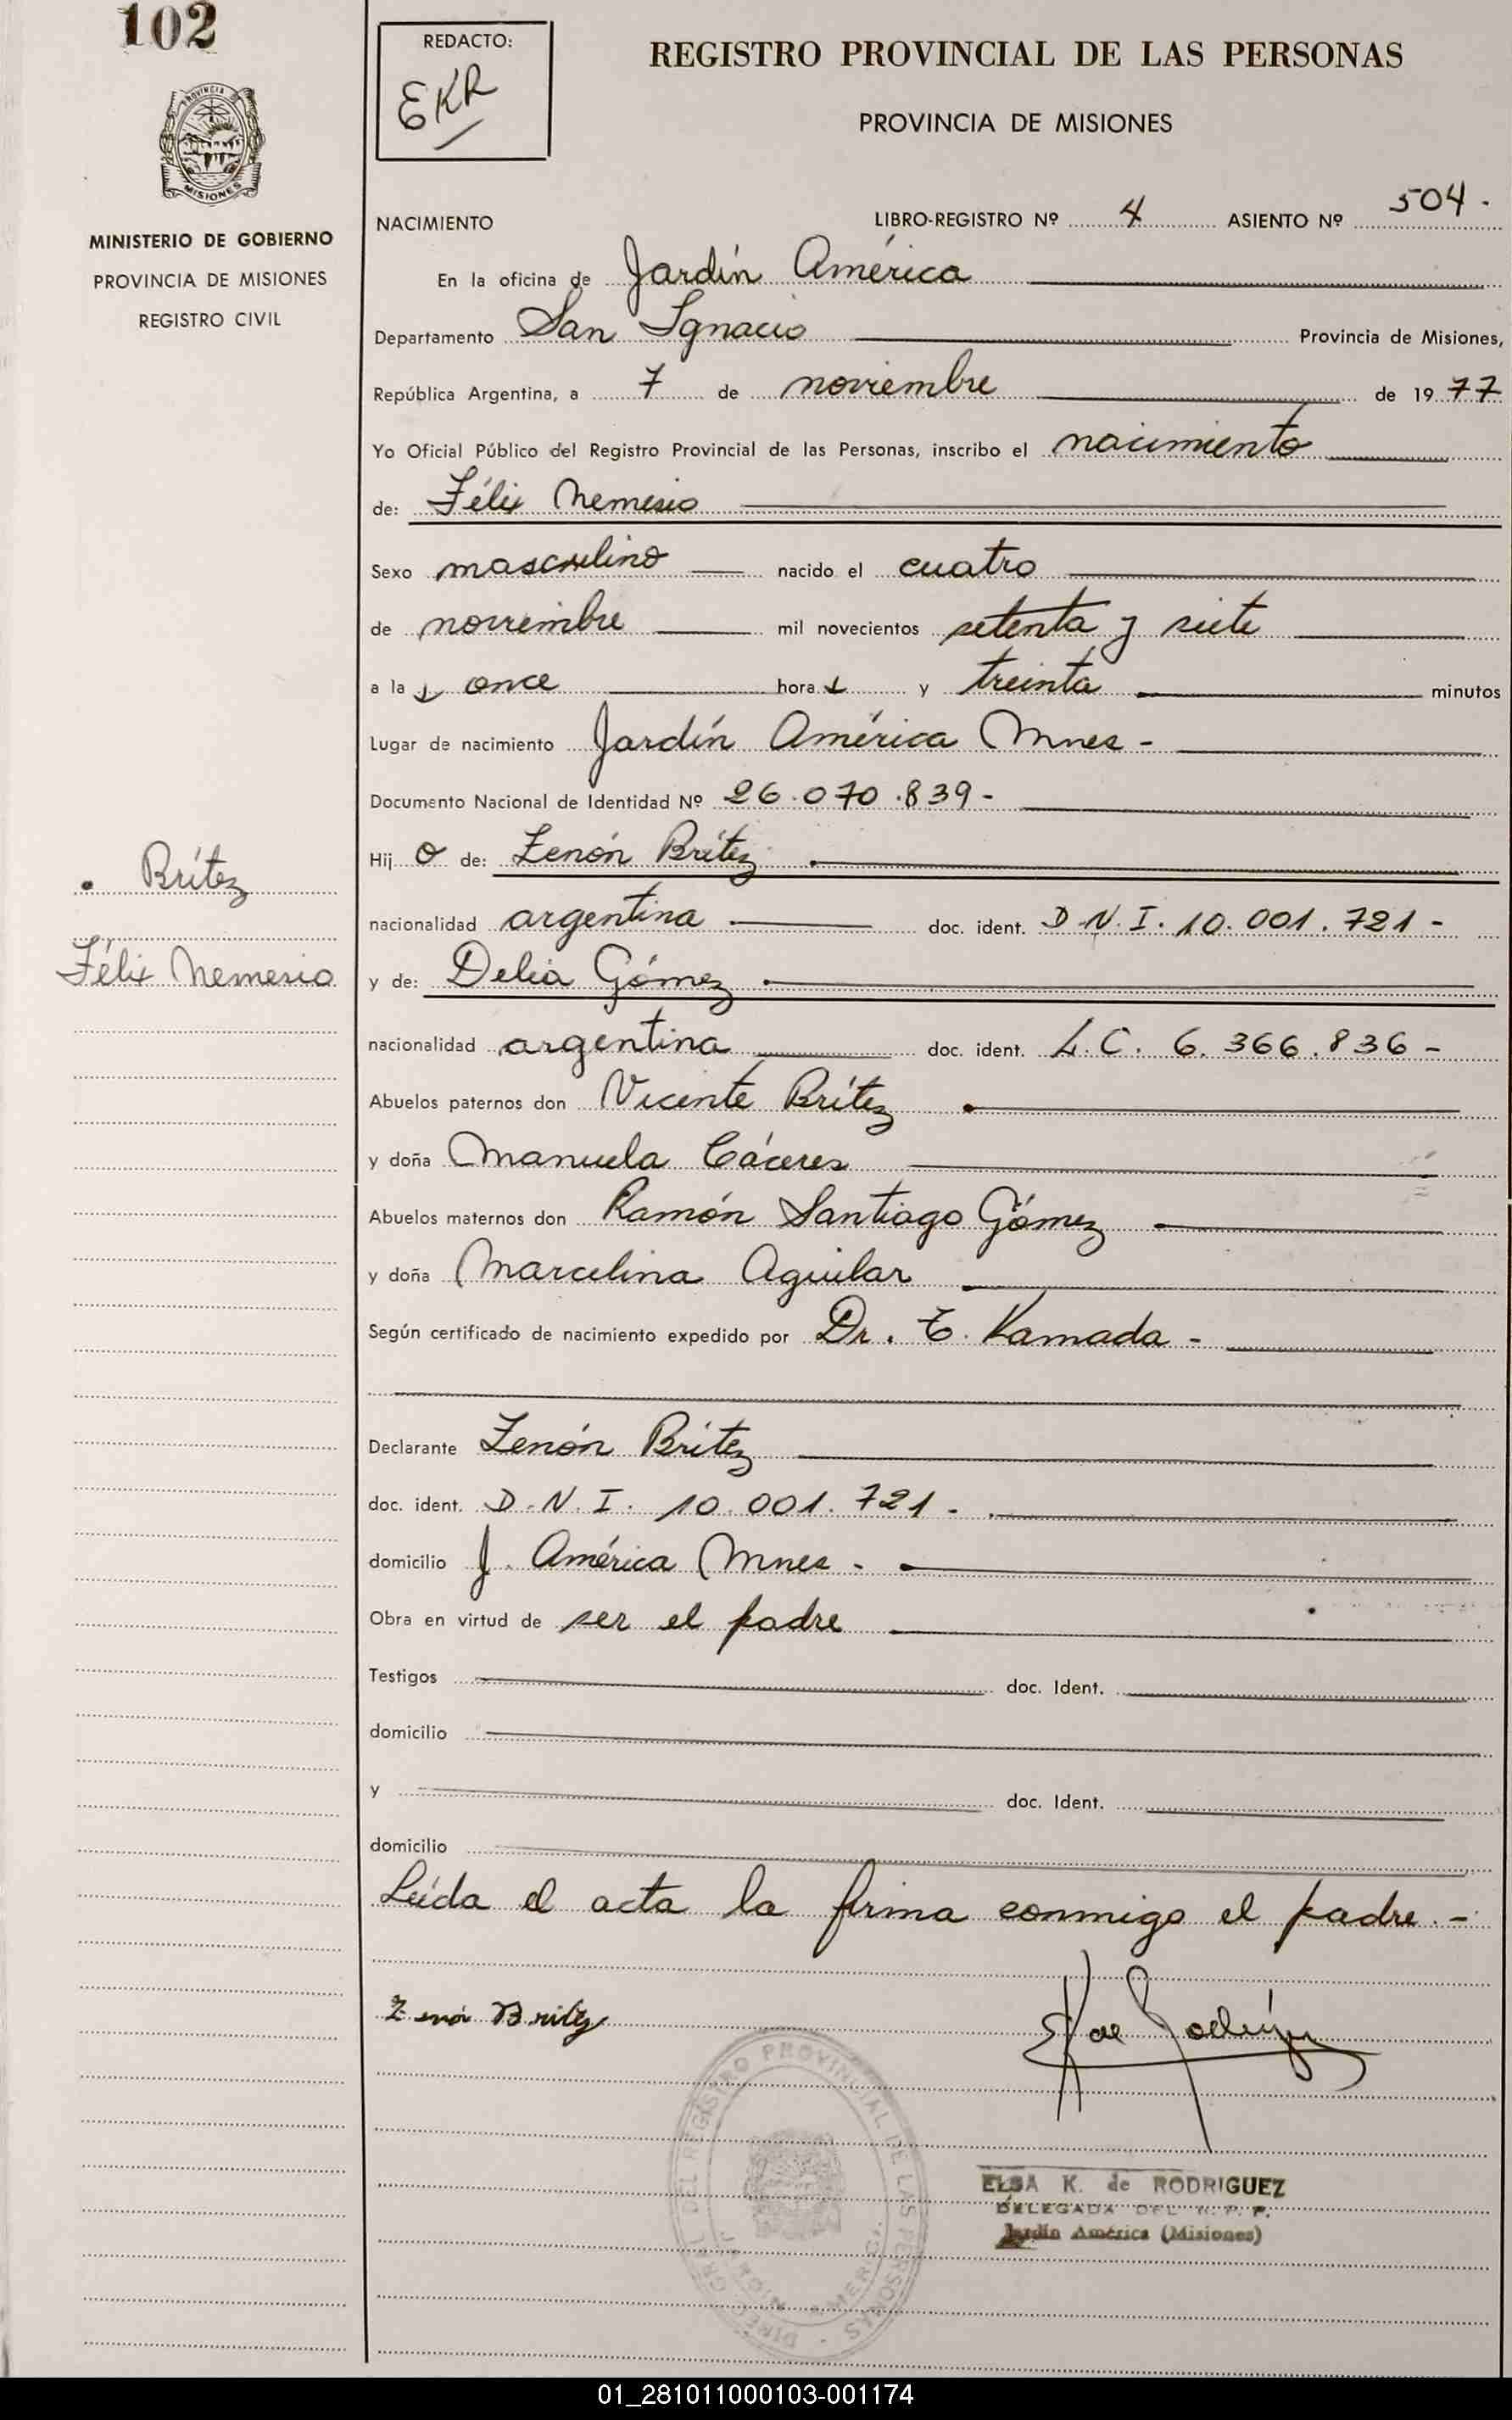 102
REDACTO:
EKR
REGISTRO PROVINCIAL DE LAS PERSONAS
PROVINCIA DE MISIONES
PROVINCIA
MISIONES
MINISTERIO DE GOBIERNO
PROVINCIA DE MISIONES
REGISTRO CIVIL
NACIMIENTO LIBRO-REGISTRO Nº 4 ASIENTO Nº 504.
En la oficina de Jardín América
Departamento San Ignacio Provincia de Misiones,
República Argentina, a 7 de noviembre de 1977
Yo Oficial Público del Registro Provincial de las Personas, inscribo el nacimiento
de: Félix Nemesio
Sexo masculino nacido el cuatro
de noviembre mil novecientos setenta y siete
a las once horas y treinta minutos
Lugar de nacimiento Jardín América Mnes -
Documento Nacional de Identidad Nº 26.070.839-
Hijo de: Zenón Brítez
nacionalidad argentina doc. ident. D.N.I. 10.001.721-
y de: Delia Gómez
nacionalidad argentina doc. ident. L.C. 6.366.836-
Brítez
Félix Nemesio
Abuelos paternos don Vicente Brítez
y doña Manuela Cáceres
Abuelos maternos don Ramón Santiago Gómez
y doña Marcelina Aguilar
Según certificado de nacimiento expedido por Dr. T. Kamada -
Declarante Zenón Brítez
doc. ident. D.N.I. 10.001.721-
domicilio J. América Mnes -
Obra en virtud de ser el padre
Testigos doc. Ident.
domicilio
y doc. Ident.
domicilio
Leída el acta la firma conmigo el padre.-
Zenón Britez
EKde Rodríguez
DIREC. GRAL. DEL REGISTRO PROVINCIAL DE LAS PERSONAS
JARDIN AMERICA
ELSA K. de RODRIGUEZ
DELEGADA DEL R. P. P.
Jardín América (Misiones)
01_281011000103-001174